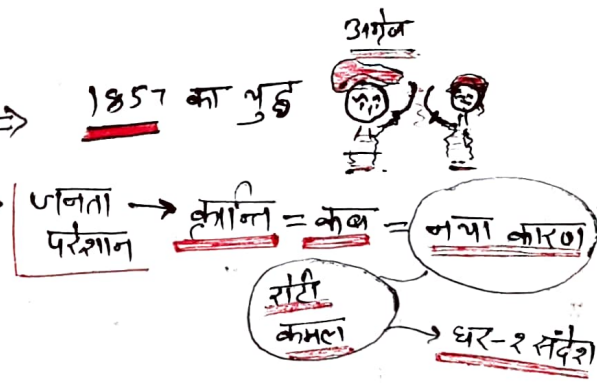 अंग्रेज
⇒ 1857 का युद्ध
जनता → क्रान्ति = कब = नया कारण
परेशान
रोटी
कमल → घर-२ संदेश